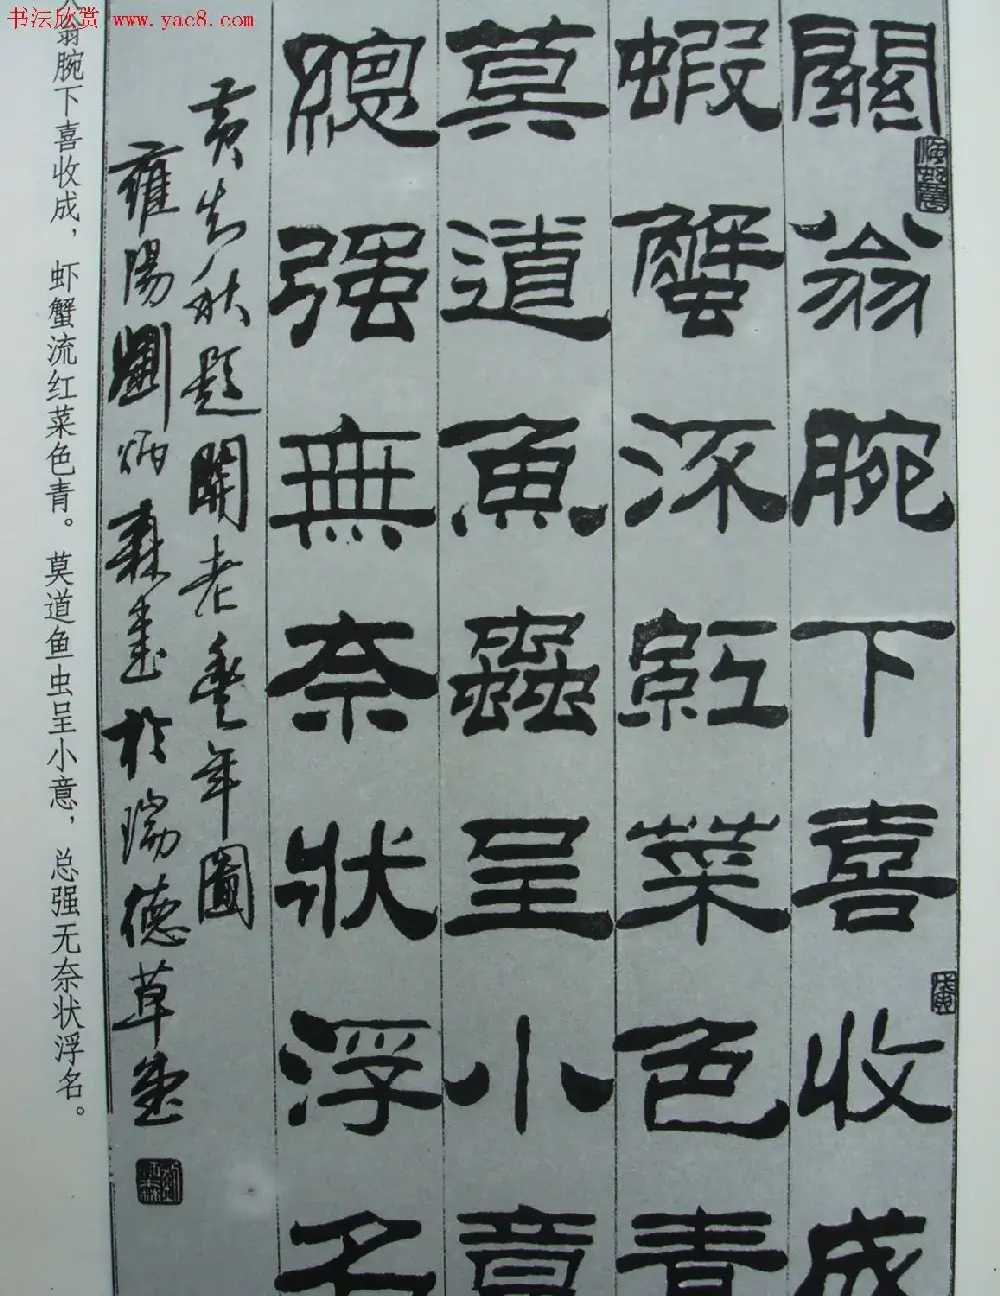 书坛欣赏 www.yac8.com
關翁腕下喜收成
蝦蟹流紅菜色青
莫道魚蟲呈小意
總强無奈狀浮名
黄知秋題關老豐年圖
雍陽劉炳森書於瑞德草堂
翁腕下喜收成，虾蟹流红菜色青。莫道鱼虫呈小意，总强无奈状浮名。